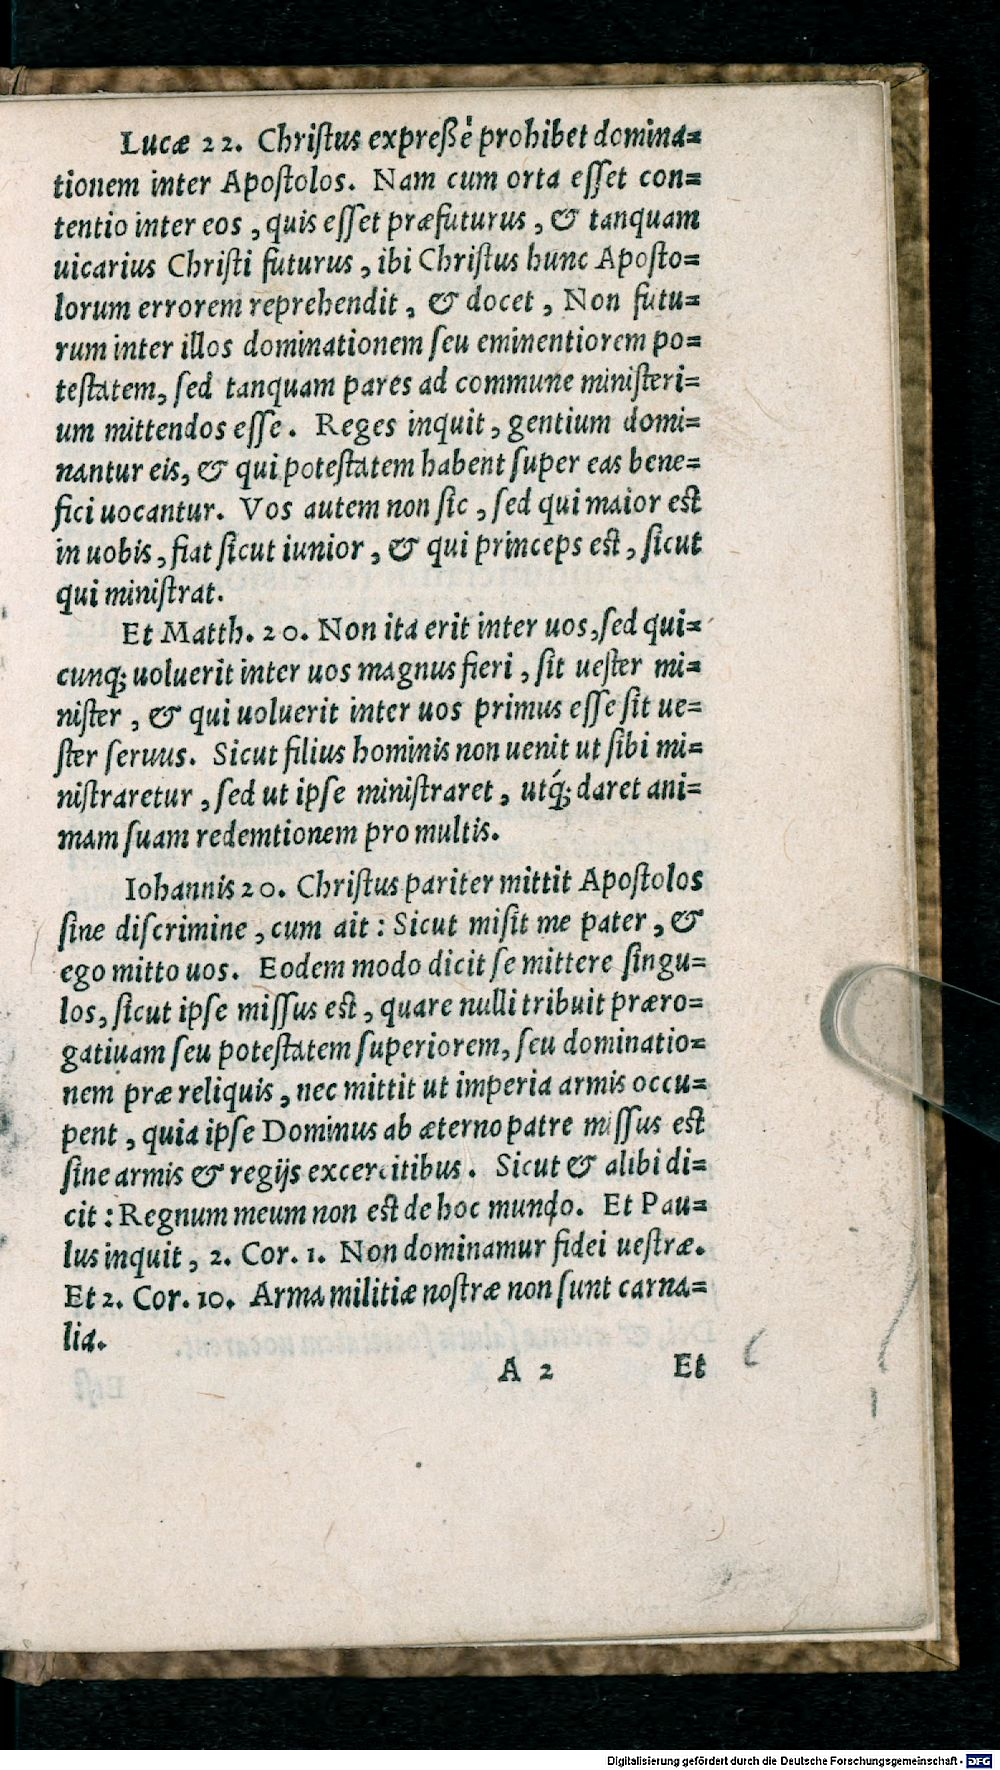 Lucæ 22. Chriſtus expreßè prohibet domina=
tionem inter Apoſtolos. Nam cum orta eſſet con=
tentio inter eos, quis eſſet præfuturus, & tanquam
uicarius Chriſti futurus, ibi Chriſtus hunc Apoſto=
lorum errorem reprehendit, & docet, Non futu=
rum inter illos dominationem ſeu eminentiorem po=
teſtatem, ſed tanquam pares ad commune miniſteri=
um mittendos eſſe. Reges inquit, gentium domi=
nantur eis, & qui poteſtatem habent ſuper eas bene=
fici uocantur. Vos autem non ſic, ſed qui maior eſt
in uobis, fiat ſicut iunior, & qui princeps eſt, ſicut
qui miniſtrat.
Et Matth. 20. Non ita erit inter uos, ſed qui=
cunq; uoluerit inter uos magnus fieri, ſit ueſter mi=
niſter, & qui uoluerit inter uos primus eſſe ſit ue=
ſter ſeruus. Sicut filius hominis non uenit ut ſibi mi=
niſtraretur, ſed ut ipſe miniſtraret, utq́; daret ani=
mam ſuam redemtionem pro multis.
Iohannis 20. Chriſtus pariter mittit Apoſtolos
ſine diſcrimine, cum ait: Sicut miſit me pater, &
ego mitto uos. Eodem modo dicit ſe mittere ſingu=
los, ſicut ipſe miſſus eſt, quare nulli tribuit præro=
gatiuam ſeu poteſtatem ſuperiorem, ſeu dominatio=
nem præ reliquis, nec mittit ut imperia armis occu=
pent, quia ipſe Dominus ab æterno patre miſſus eſt
ſine armis & regijs excercitibus. Sicut & alibi di=
cit: Regnum meum non eſt de hoc mundo. Et Pau=
lus inquit, 2. Cor. 1. Non dominamur fidei ueſtræ.
Et 2. Cor. 10. Arma militiæ noſtræ non ſunt carna=
lia.
A 2 Et
Digitalisierung gefördert durch die Deutsche Forschungsgemeinschaft - DFG